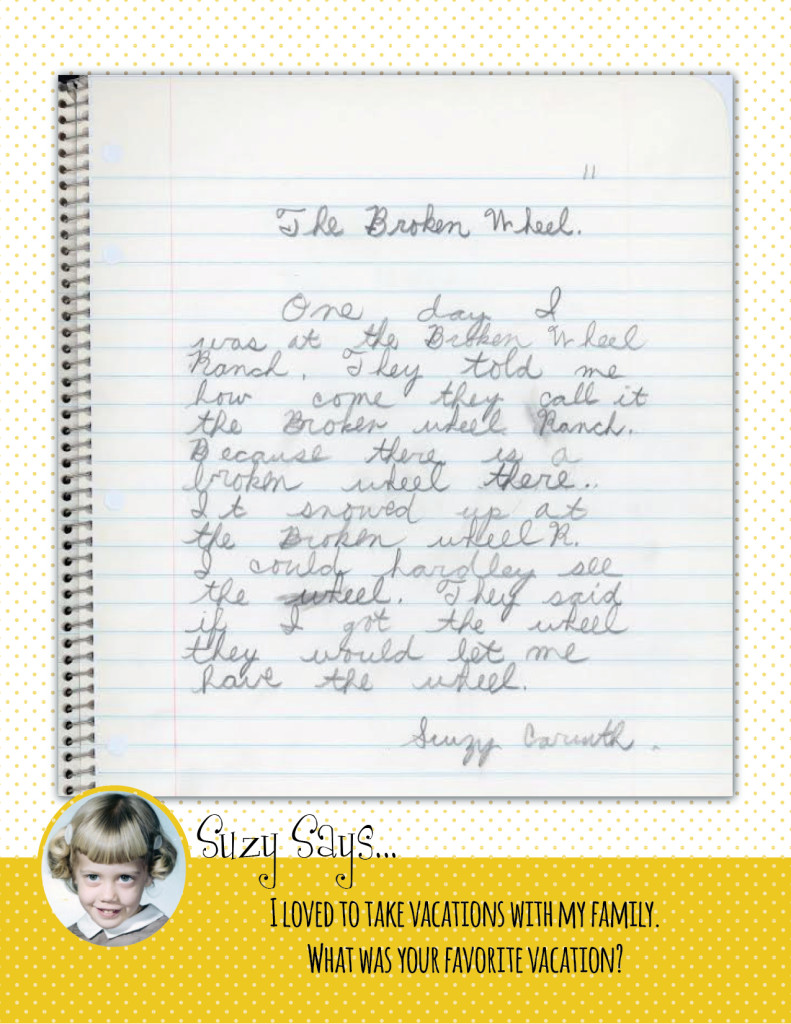 11
The Broken Wheel.
One day I
was at the Broken Wheel
Ranch. They told me
how come they call it
the Broken wheel Ranch.
Because there is a
broken wheel there.
It snowed up at
the Broken wheel R.
I could hardley see
the wheel. They said
if I got the wheel
they would let me
have the wheel.
Suzy
Suzy Says...
I loved to take vacations with my family.
What was your favorite vacation?